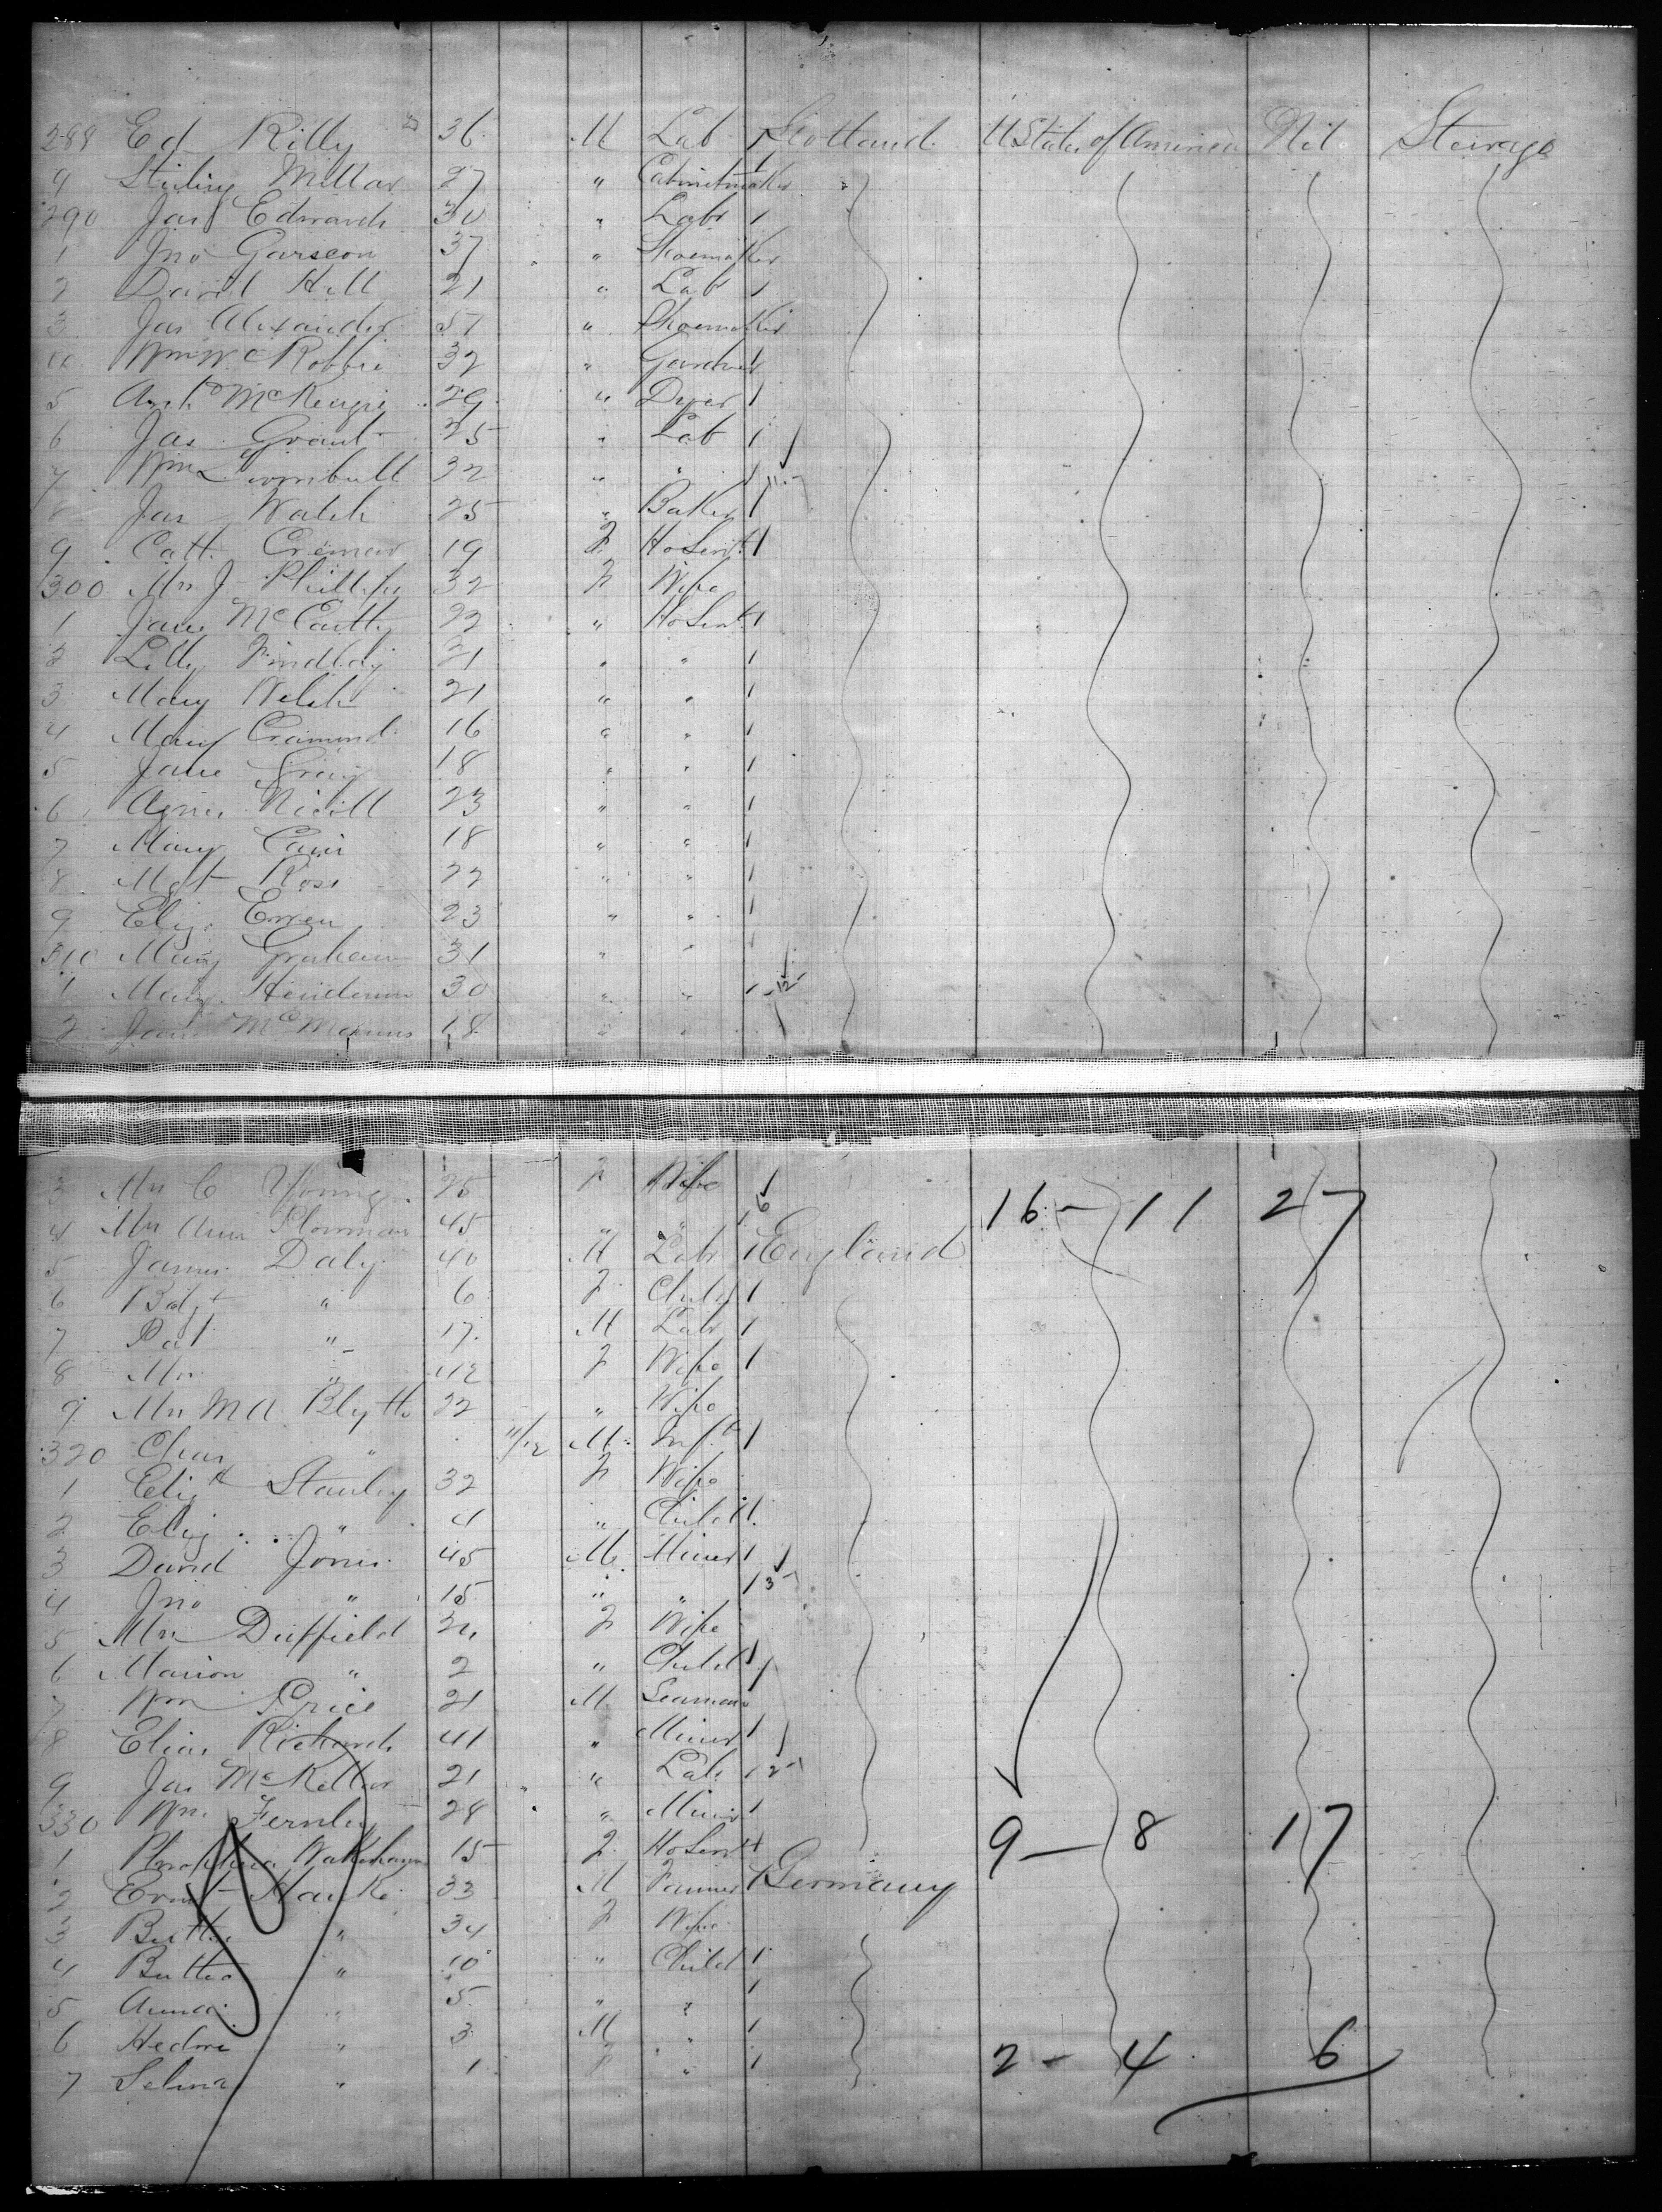 288 Ed Rilly 36 M Lab 1 Scotland U States of America Nil Steerage
9 Stirling Millar 27 " Cabinetmaker
290 Jas Edwards 30 " Labr 1
1 Jno Garscon 37 " Shoemaker
2 David Hill 21 " Lab 1
3 Jas Alexander 51 " Shoemaker
4 Wm McRobbie 32 " Gardner 1
5 Arch McKenzie 29 " Dyer 1
6 Jas Grant 25 " Lab 1
7 Wm Turnbull 32 " " 1 11
8 Jas Walsh 25 " Baker 1
9 Cath 19 F HoServt 1
300 Mrs J Phillips 32 F Wife
1 Jane McCarthy 22 " HoServt 1
2 Lilly Findlay 21 " " 1
3 Mary Welsh 21 " " 1
4 Mary Cramond 16 " " 1
5 Jane Greig 18 " " 1
6 Agnes Nicoll 23 " " 1
7 Mary Cain 18 " " 1
8 Mgt Ross 22 " " 1
9 Eliz. Ewen 23 " " 1
310 Mary Graham 31 " "
1 Mary Henderson 30 " " 1 -12-
2 Jane McManus 18 " "
3 Mrs C Young 25 F Wife 1 16 - 11 27
4 Mrs Ann Plowman 45 " " 1 6
5 James Daly 40 M Labr 1 England
6 Bdgt " 6 F Child 1
7 Pat " 17 M Labr 1
8 Mrs " 42 F Wife 1
9 Mrs M A Blyth 22 " Wife
320 Chas " 11/12 M Inft 1
1 Elizth Stanley 32 F Wife
2 Eliz " 4 " Child 1
3 David Jones 45 M Miner 1
4 Jno " 15 " " 1 3
5 Mrs Duffield 24 F Wife
6 Marion " 2 " Child 1
7 Wm Price 21 M Seaman
8 Elias Richards 41 " Miner 1
9 Jas McKellar 21 " Lab 1 2
330 Wm. Fernley 28 " Miner 1 9 - 8 17
1 15 F HoServt 1
2 Ernst 33 M Farmer 1 Germany
3 " 34 F Wife
4 Bertha " 10 " Child 1
5 Anna " 5 " " 1
6 " 3 M " 1 2 - 4 6
7 Selma " 1 F " 1